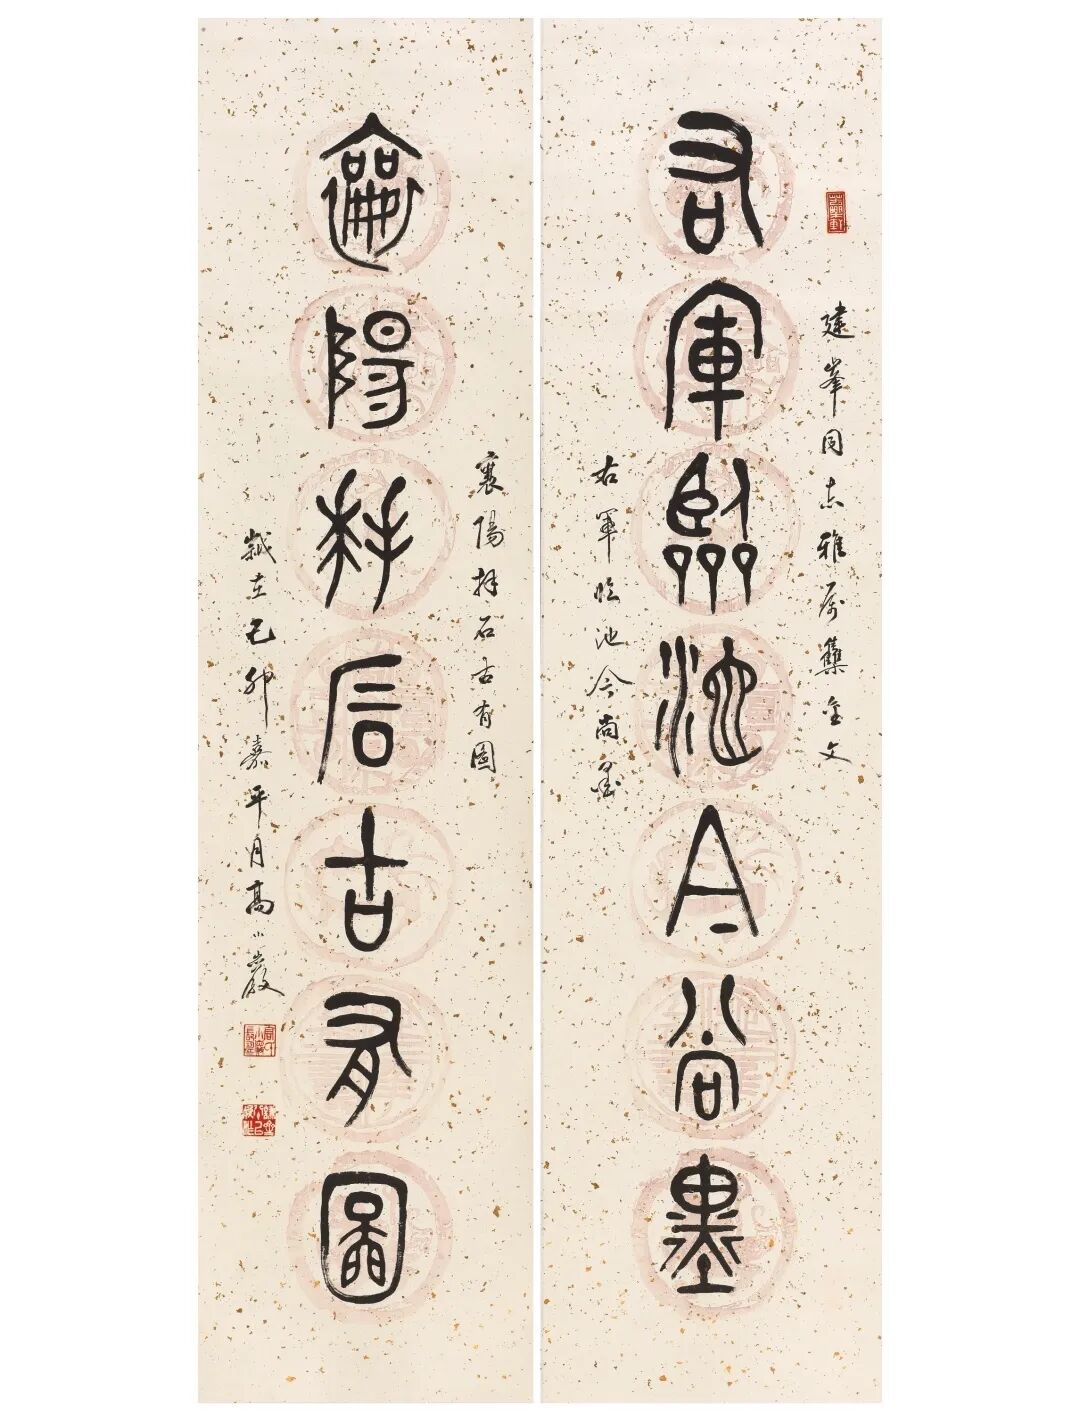 建峯同志雅属集金文
右軍臨池今尚墨
右軍臨池今尚墨
襄陽拜石古有圖
襄陽拜石古有圖
歲在己卯嘉平月高小巖